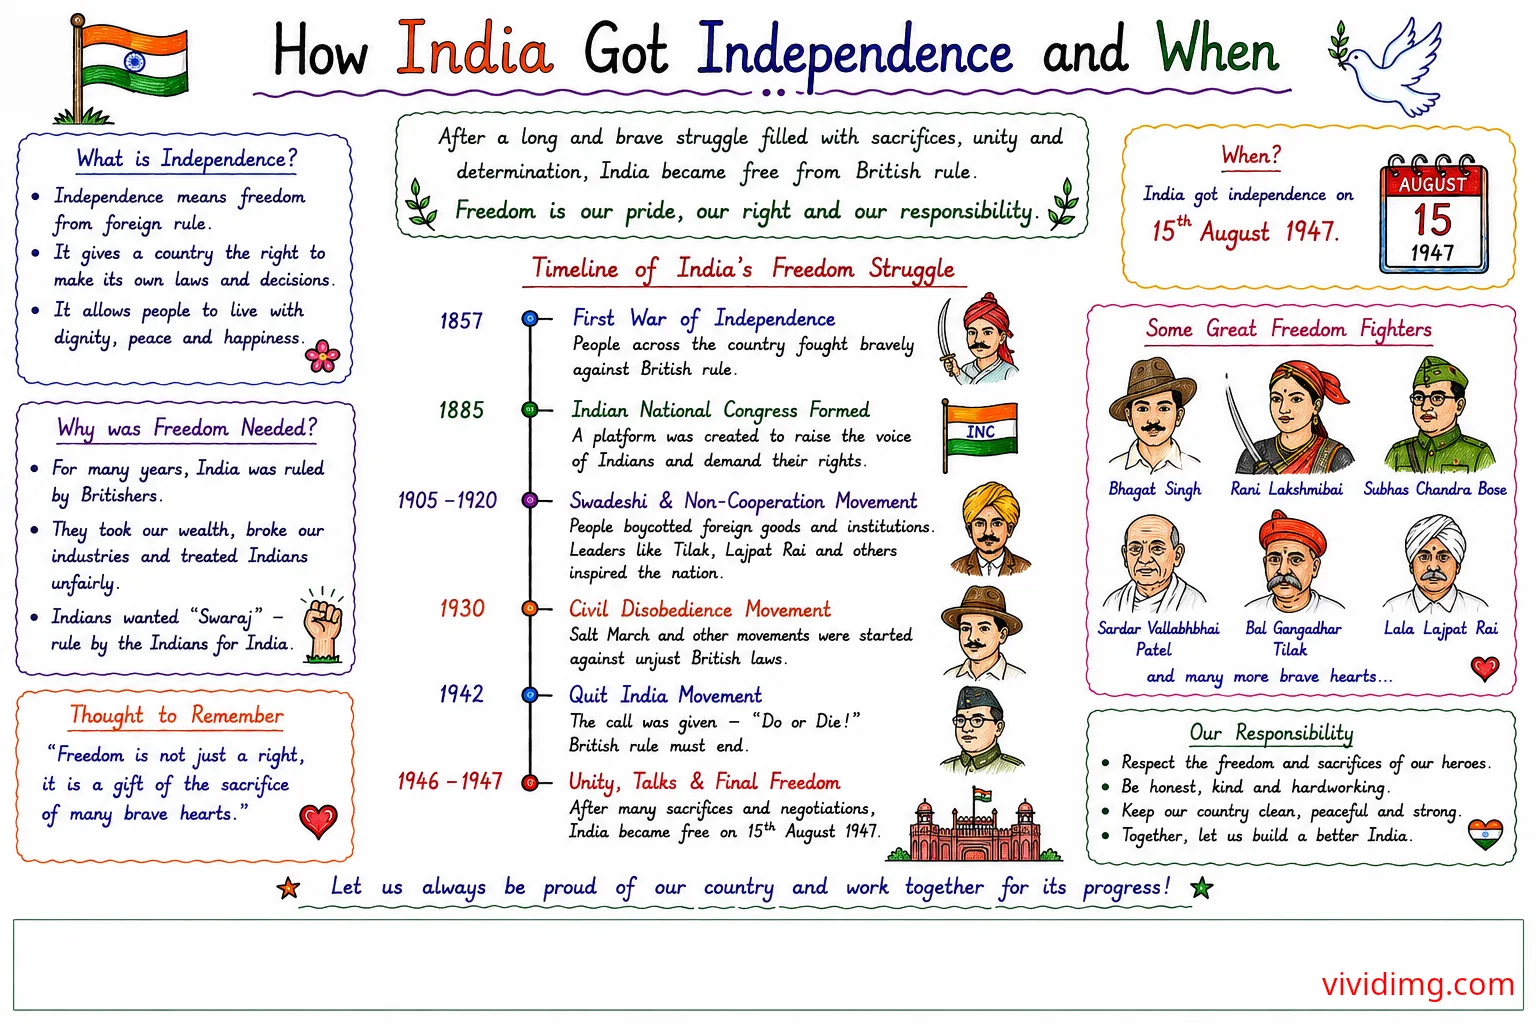 How India Got Independence and When
What is Independence?
• Independence means freedom
from foreign rule.
• It gives a country the right to
make its own laws and decisions.
• It allows people to live with
dignity, peace and happiness.
Why was Freedom Needed?
• For many years, India was ruled
by Britishers.
• They took our wealth, broke our
industries and treated Indians
unfairly.
• Indians wanted “Swaraj” –
rule by the Indians for India.
Thought to Remember
“Freedom is not just a right,
it is a gift of the sacrifice
of many brave hearts.”
After a long and brave struggle filled with sacrifices, unity and
determination, India became free from British rule.
Freedom is our pride, our right and our responsibility.
Timeline of India's Freedom Struggle
1857
First War of Independence
People across the country fought bravely
against British rule.
1885
Indian National Congress Formed
A platform was created to raise the voice
of Indians and demand their rights.
INC
1905 – 1920
Swadeshi & Non-Cooperation Movement
People boycotted foreign goods and institutions.
Leaders like Tilak, Lajpat Rai and others
inspired the nation.
1930
Civil Disobedience Movement
Salt March and other movements were started
against unjust British laws.
1942
Quit India Movement
The call was given – “Do or Die!”
British rule must end.
1946 – 1947
Unity, Talks & Final Freedom
After many sacrifices and negotiations,
India became free on 15th August 1947.
When?
India got independence on
15th August 1947.
AUGUST
15
1947
Some Great Freedom Fighters
Bhagat Singh
Rani Lakshmibai
Subhas Chandra Bose
Sardar Vallabhbhai
Patel
Bal Gangadhar
Tilak
Lala Lajpat Rai
and many more brave hearts...
Our Responsibility
• Respect the freedom and sacrifices of our heroes.
• Be honest, kind and hardworking.
• Keep our country clean, peaceful and strong.
• Together, let us build a better India.
Let us always be proud of our country and work together for its progress!
vividimg.com